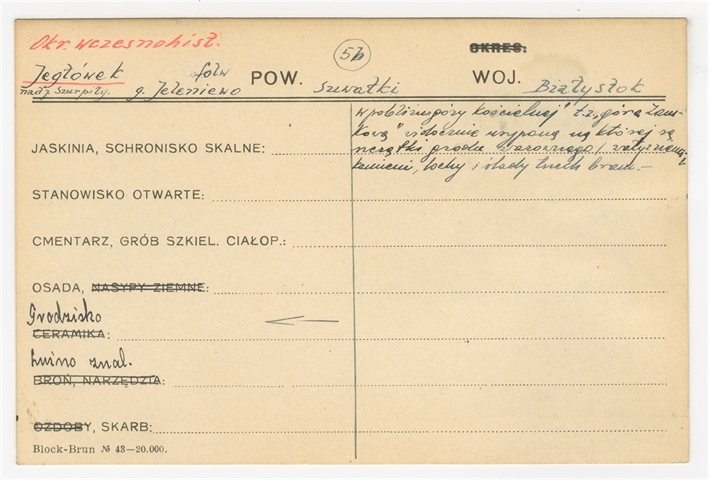 Okr. wczesnohist.
5b
OKRES:
Jegłówek folw POW. Suwałki WOJ. Białystok
nad j. Szurpiły. g. Jeleniewo
w pobliżu góry Kościelnej" t.z. „góra Zam-
kowa" widocznie wyspa na której są
JASKINIA, SCHRONISKO SKALNE:
resztki grodu warownego
kamieni, lochy i ślady trzech bram.—
STANOWISKO OTWARTE:
CMENTARZ, GRÓB SZKIEL. CIAŁOP.:
OSADA, NASYPY ZIEMNE:
Grodzisko
CERAMIKA:
Luźno znal.
BROŃ, NARZĘDZIA:
OZDOBY, SKARB:
Block-Brun № 43—20.000.